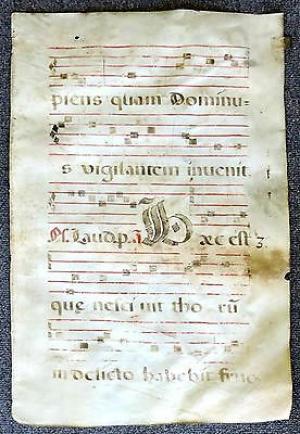 piens quam Dominu-
s vigilantem invenit
Ps. Laud. p. Hæc est
que nescivit thorũ
in delicto habebit fruc